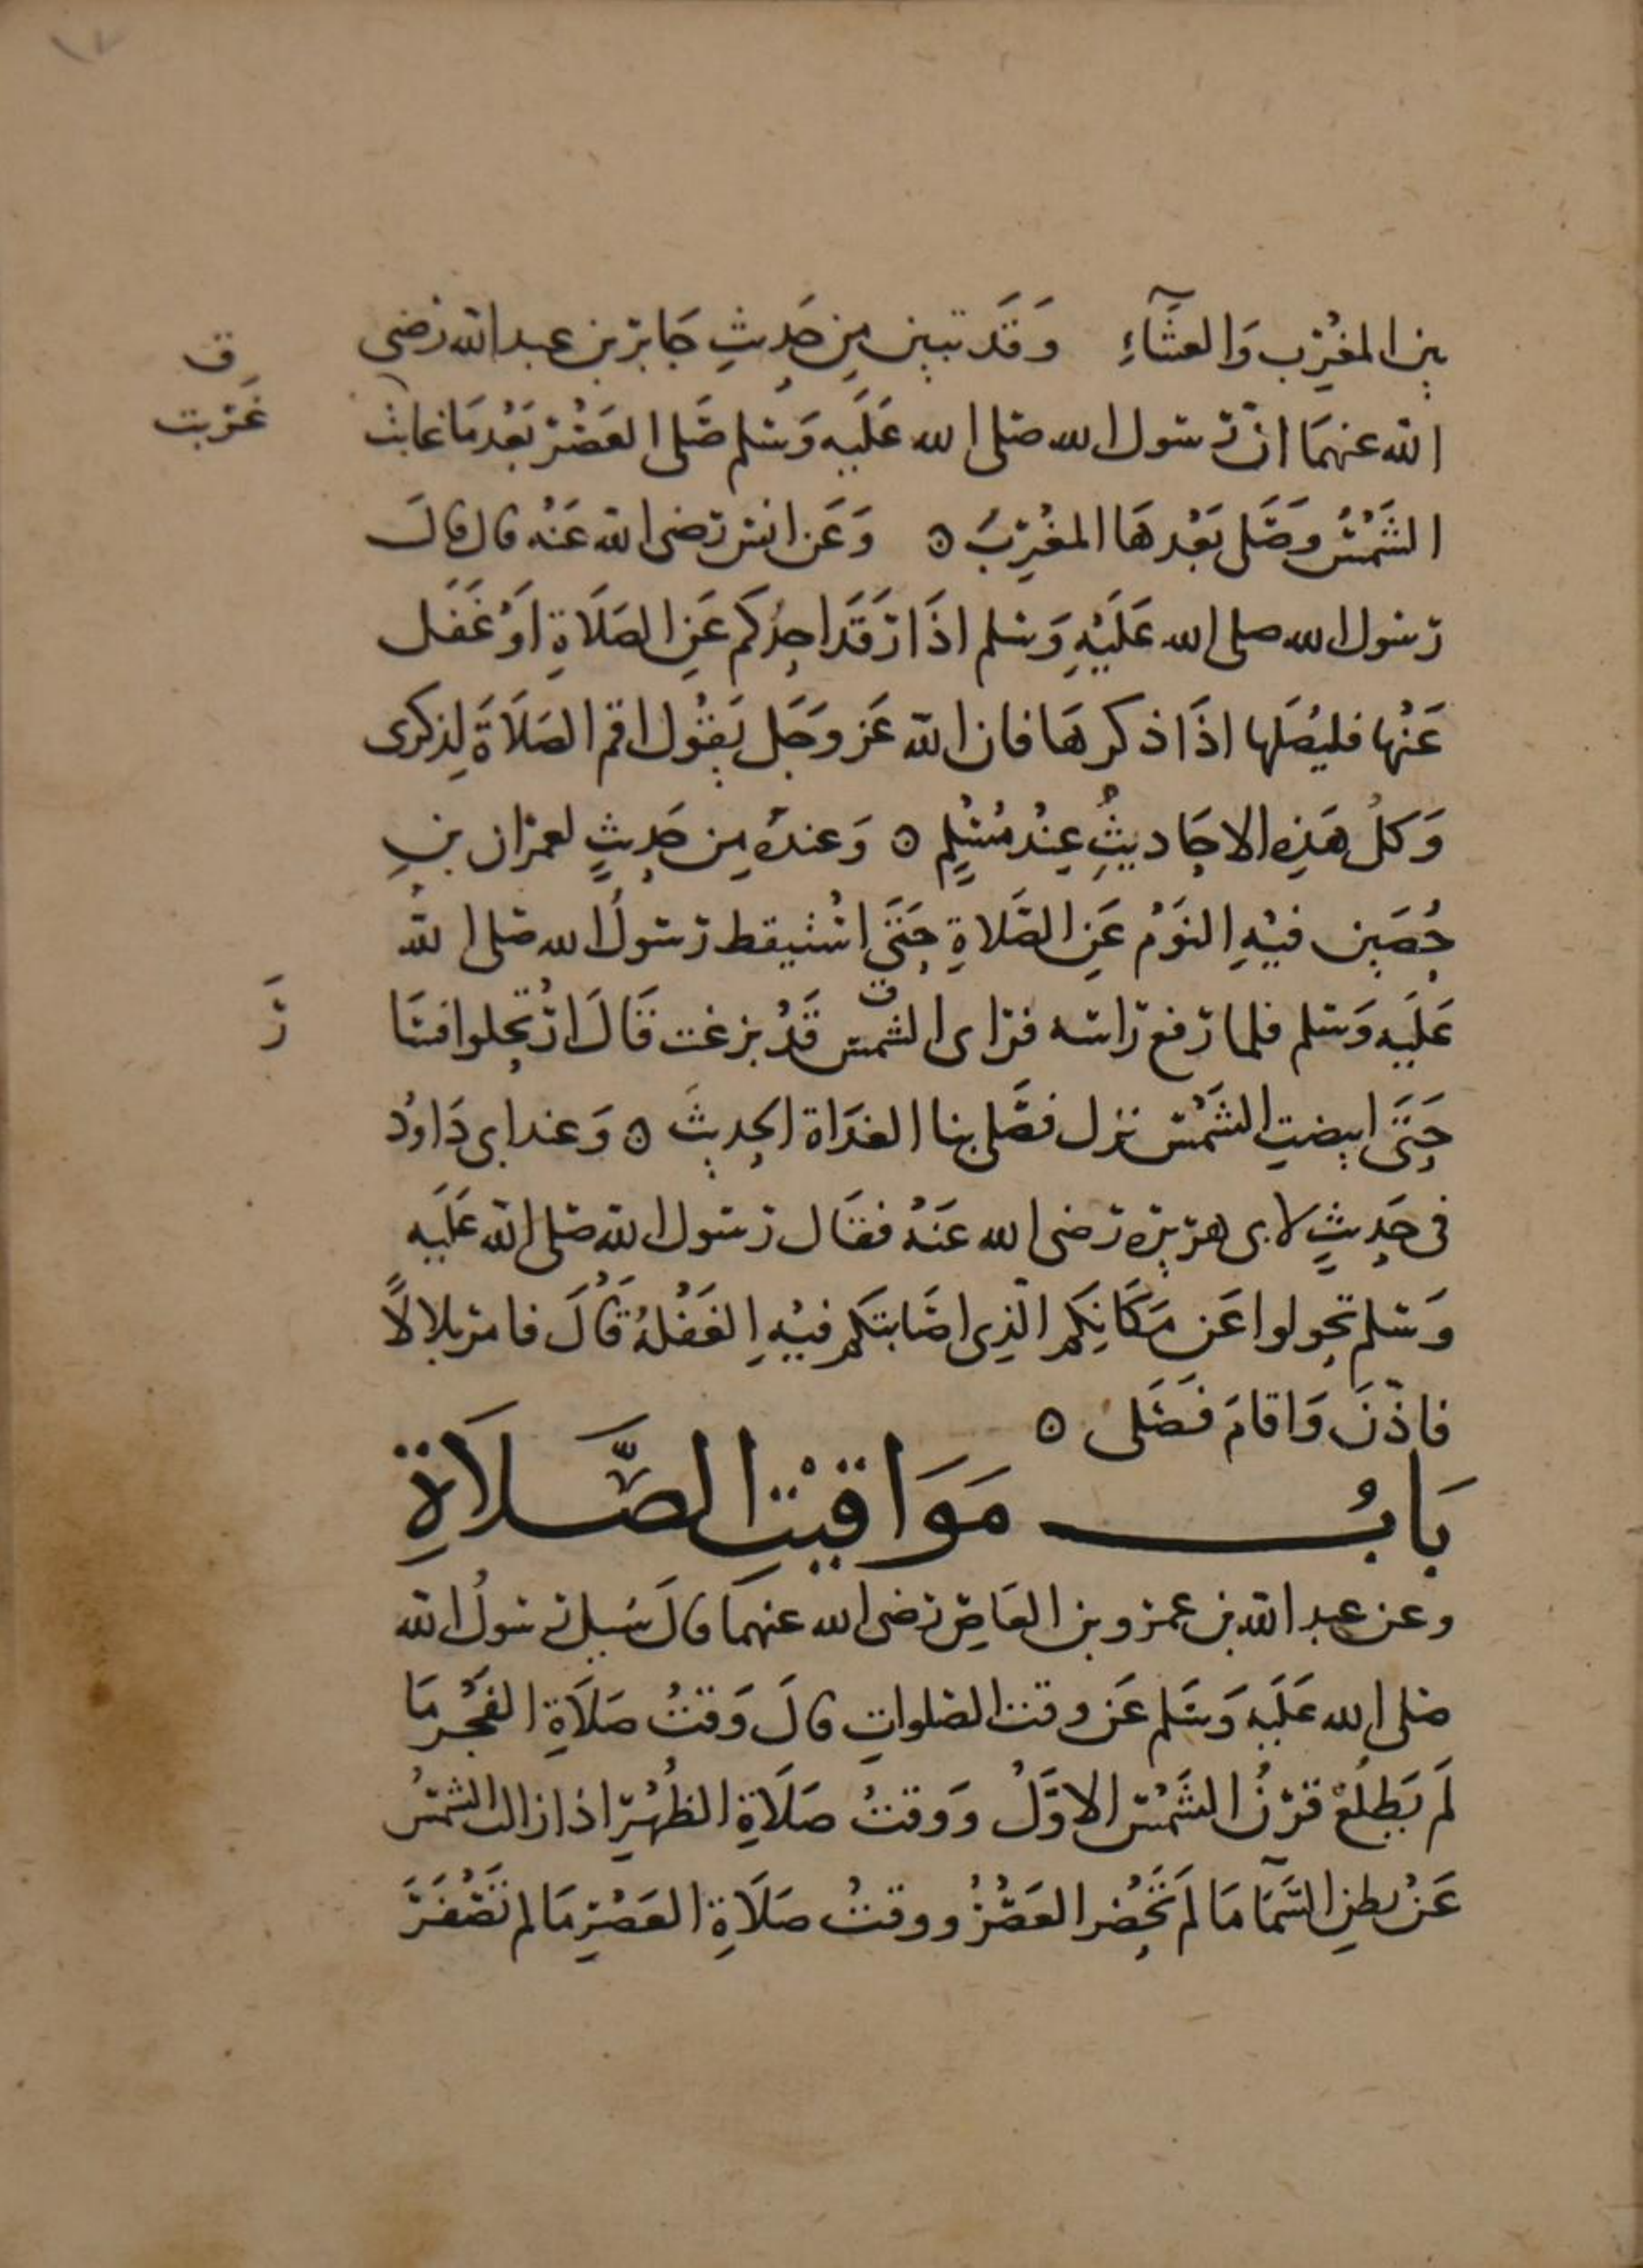 بين المغْرِب وَالعشَآءِ وَقَد تبين مِن حَدِيثِ جَابر بن عبد الله رضي
الله عنهمَا انّ رسول الله صلى الله عَلَيه وَسلم صَلى العَصْر بَعْدمَا غابت
غَربت
الشَمْسُ وصَلى بَعْدهَا المغْرِبَ ٥ وَعَن انس رضى الله عَنْه قال قالَ
رسول الله صلى الله عَلَيْهِ وَسلم اذَا رَقَدَ احدكم عَنِ الصَلَاةِ اَوْ غَفَل
عَنْها فليُصَلها اذَا ذكرهَا فان الله عَز وَجَل يَقُول اقم الصَلَاةَ لِذِكرى
وَكلُ هَذِه الاحَاديثِ عِنْد مُسْلِمٍ ٥ وَعندهُ مِن حَدِيثٍ لعمران بنِ
حُصَين فيْهِ النَوْمُ عَنِ الصَّلاةِ حَتَى اسْتيقظ رَسولُ الله صَلى الله
عَلَيه وَسلم فلما رَفع رَاسه فرَاى الشمس قَدْ بزغت قَالَ ارْتحِلوا فسَا
رَ
حَتَى ابيضتِ الشَمْس نزل فصَلى بنا الغدَاة الحدِيثَ ٥ وَعند ابى دَاودُ
فى حَدِيثٍ لابى هريره رَضى الله عَنْهُ فقَال رَسول الله صَلى الله عَلَيه
وَسلم تحولوا عَن مَكَانِكم الّذِى اصَابتكم فيْهِ الغَفْلَةُ قَالَ فامر بلالاً
فاذّنَ وَاقامَ فصَلى ٥
بَابُ مَوَاقيْتِ الصَّلَاةِ
وعن عبد الله بن عمرو بن العَاصِ رَضى الله عنهما قالَ سُيل رَسولُ الله
صَلى الله عَلَيه وَسَلم عَن وقت الصَلواتِ قالَ وَقتُ صَلَاةِ الفَجْر مَا
لَم يَطلُعْ قرْنُ الشَمْس الاوَّلُ وَوقتُ صَلَاةِ الظُهْرِ اذا زالت الشمسُ
عَنْ بطنِ السَمآ مَا لَم تَحْضُر العَصْرُ ووقتُ صَلَاةِ العَصْرِ مَا لم تَصْفَرَّ